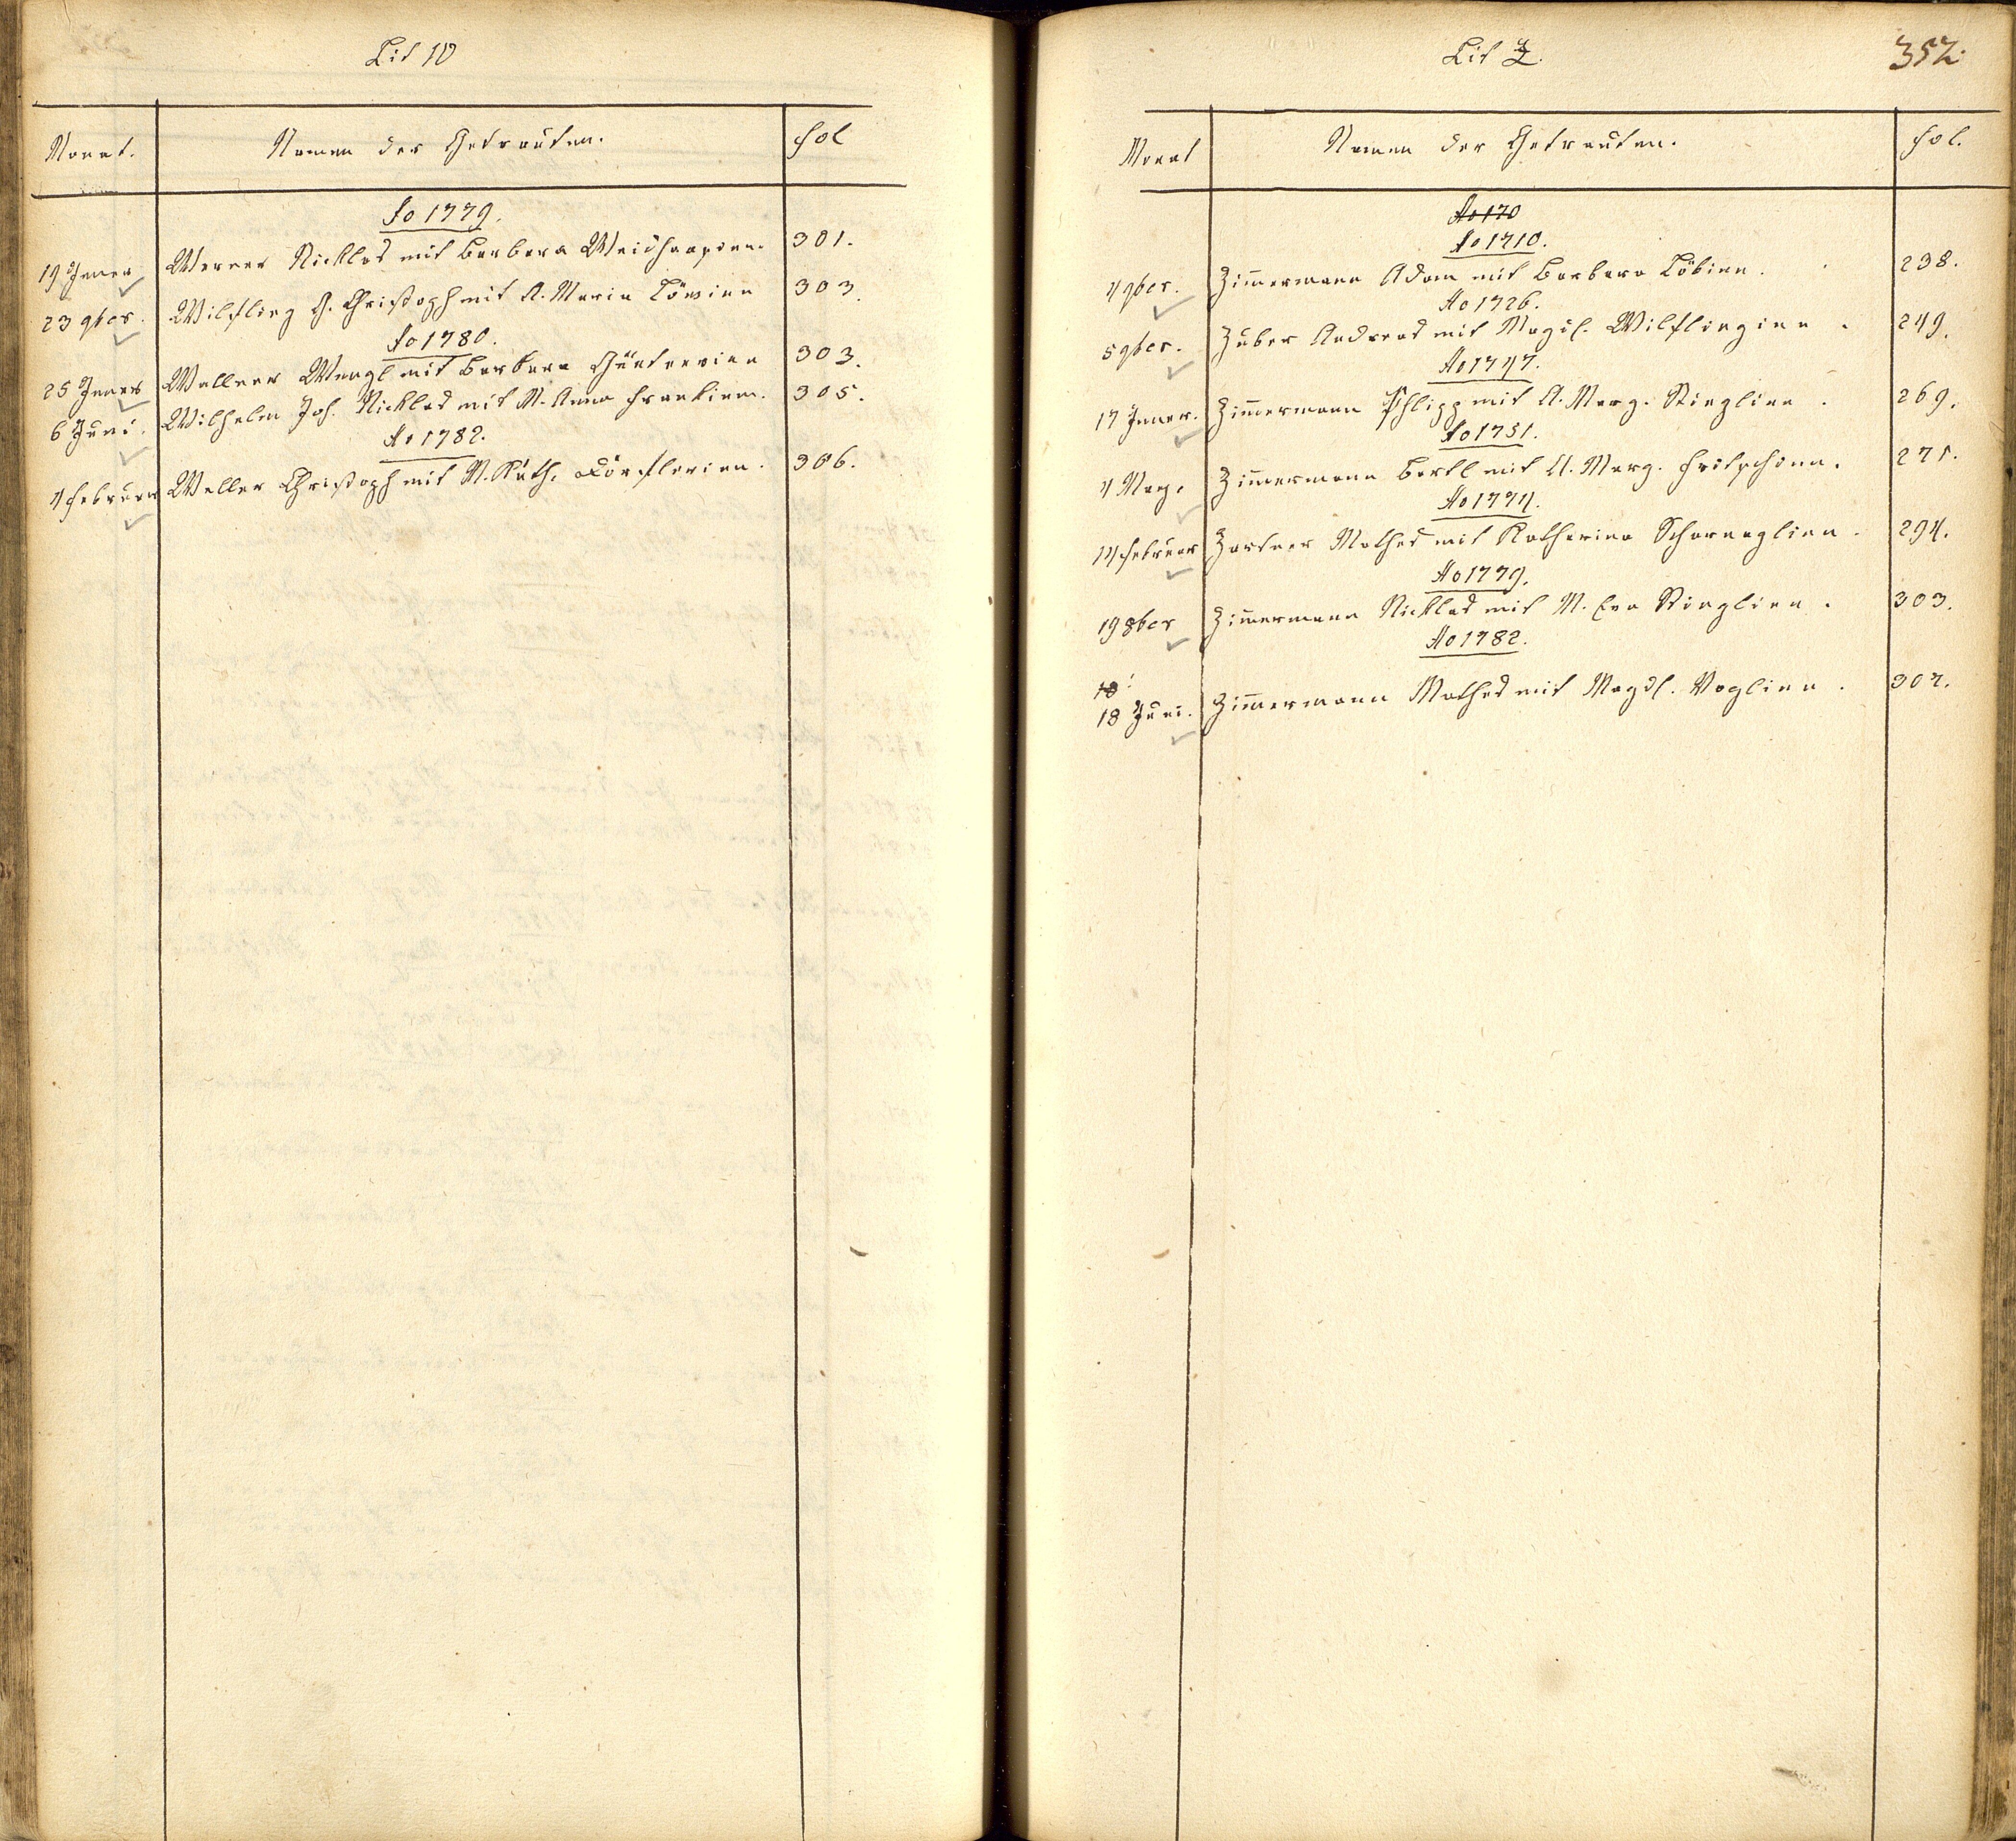 Lit W
Monat. Namen der Getrauten. fol
Ao 1779.
19 Jener Werner Nicklas mit Barbara 301.
23 9ber. Wilfling J. Christoph mit A. Maria Löwin 303.
Ao 1780.
25 Jener Wallner Wenzl mit Barbara 303.
6 Juni. Wilhelm Joh. Nicklas mit M. Anna Frankin. 305.
Ao 1782.
4 Februar Weller Christoph mit M. Kath. Dörflerin. 306.
Lit Z. 352.
Monat Namen der Getrauten. fol.
Ao 170
Ao 1710.
4 9ber. Zimermann Adam mit Barbara Löbin. 238.
Ao 1726.
5 9ber. Zuber Andreas mit Magdl. Wilflingin. 249.
Ao 1747.
17 Jener. Zimermann Phlipp mit A. Marg. Stinglin. 269.
Ao 1751.
4 May. Zimermann Bartl mit A. Marg. Fritschin. 271.
Ao 1774.
14 Februar Zartner Mathes mit Katharina Scharnaglin. 294.
Ao 1779.
19 8ber Zimermann Nicklas mit M. Eva Stinglin. 303.
Ao 1782.
18
18 Juni. Zimermann Mathes mit Magdl. Voglin. 307.